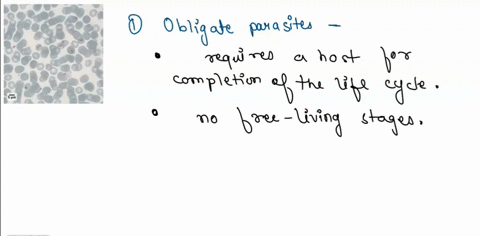 ① Obligate parasites –
• requires a host for
completion of the life cycle.
• no free-living stages.